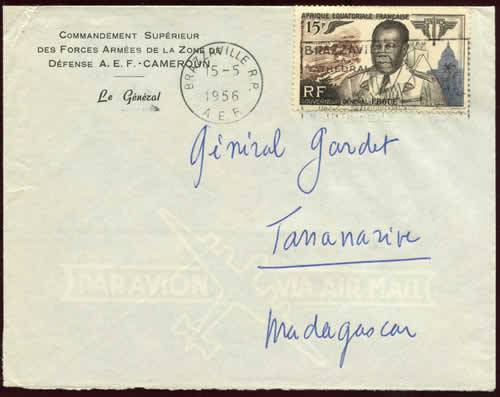 COMMANDEMENT SUPÉRIEUR
DES FORCES ARMÉES DE LA ZONE DE
DÉFENSE A. E. F. - CAMEROUN
Le Général
BRAZZAVILLE R.P.
15-5
1956
A.E.F.
AFRIQUE EQUATORIALE FRANÇAISE
15F
BRAZZAVI
RF
GOUVERNEUR GÉNÉRAL EBOUÉ
Général Gardet
Tananarive
Madagascar
PAR AVION
VIA AIR MAIL